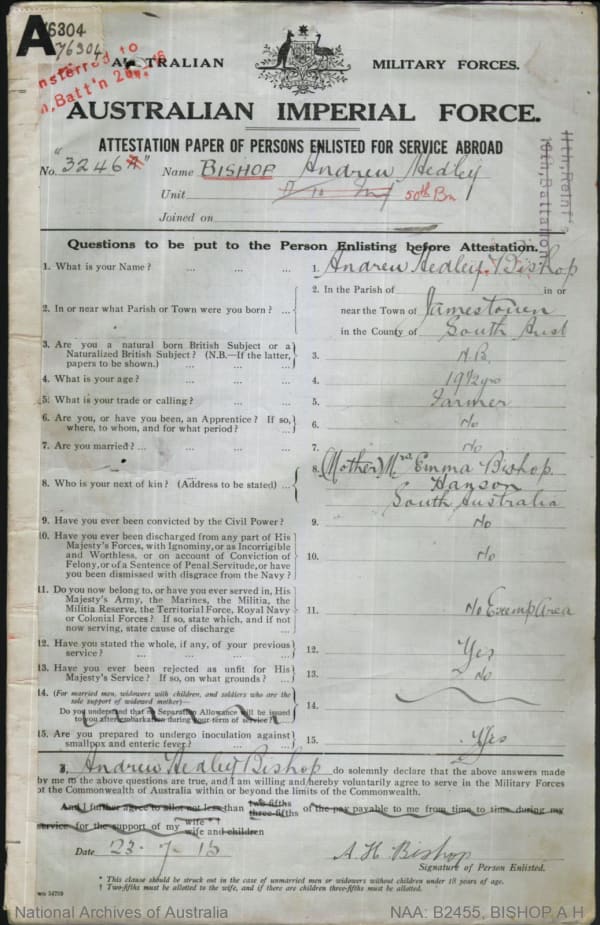 A
76304
76304
nsferred to
n, Batt'n 26.2.16
AUSTRALIAN MILITARY FORCES.
AUSTRALIAN IMPERIAL FORCE.
ATTESTATION PAPER OF PERSONS ENLISTED FOR SERVICE ABROAD
No. "3246 A" Name BISHOP Andrew Hedley
Unit 50th Bn
Joined on
11th Reinf's
10th, Battalion
Questions to be put to the Person Enlisting before Attestation.
1. What is your Name? ... ... ... 1. Andrew Hedley Bishop
2. In or near what Parish or Town were you born? ... 2. In the Parish of in or
near the Town of Jamestown
in the County of South Aust
3. Are you a natural born British Subject or a
Naturalized British Subject? (N.B.—If the latter,
papers to be shown.) ... ... ... 3. N.B.
4. What is your age? ... ... ... 4. 19 1/2 yrs
5. What is your trade or calling? ... ... 5. Farmer
6. Are you, or have you been, an Apprentice? If so,
where, to whom, and for what period? ... 6. No
7. Are you married? ... ... ... ... 7. No
8. Who is your next of kin? (Address to be stated) ... 8. (Mother) Mrs. Emma Bishop
Hanson
South Australia
9. Have you ever been convicted by the Civil Power? 9. No
10. Have you ever been discharged from any part of His
Majesty's Forces, with Ignominy, or as Incorrigible
and Worthless, or on account of Conviction of
Felony, or of a Sentence of Penal Servitude, or have
you been dismissed with disgrace from the Navy? 10. No
11. Do you now belong to, or have you ever served in, His
Majesty's Army, the Marines, the Militia, the
Militia Reserve, the Territorial Force, Royal Navy
or Colonial Forces? If so, state which, and if not
now serving, state cause of discharge ... 11. No Exemp Area
12. Have you stated the whole, if any, of your previous
service? ... ... ... ... 12. Yes
13. Have you ever been rejected as unfit for His
Majesty's Service? If so, on what grounds? ... 13. No
14. (For married men, widowers with children, and soldiers who are the
sole support of widowed mother)—
Do you understand that no Separation Allowance will be issued
to you after embarkation during your term of service? 14.
15. Are you prepared to undergo inoculation against
smallpox and enteric fever? ... ... 15. Yes
I, Andrew Hedley Bishop do solemnly declare that the above answers made
by me to the above questions are true, and I am willing and hereby voluntarily agree to serve in the Military Forces
of the Commonwealth of Australia within or beyond the limits of the Commonwealth.
And I further agree to allot not less than two-fifths three-fifths of the pay payable to me from time to time during my
service for the support of my wife * † wife and children
Date 23-7-15 A H Bishop
Signature of Person Enlisted.
* This clause should be struck out in the case of unmarried men or widowers without children under 18 years of age.
† Two-fifths must be allotted to the wife, and if there are children three-fifths must be allotted.
National Archives of Australia NAA: B2455, BISHOP A H